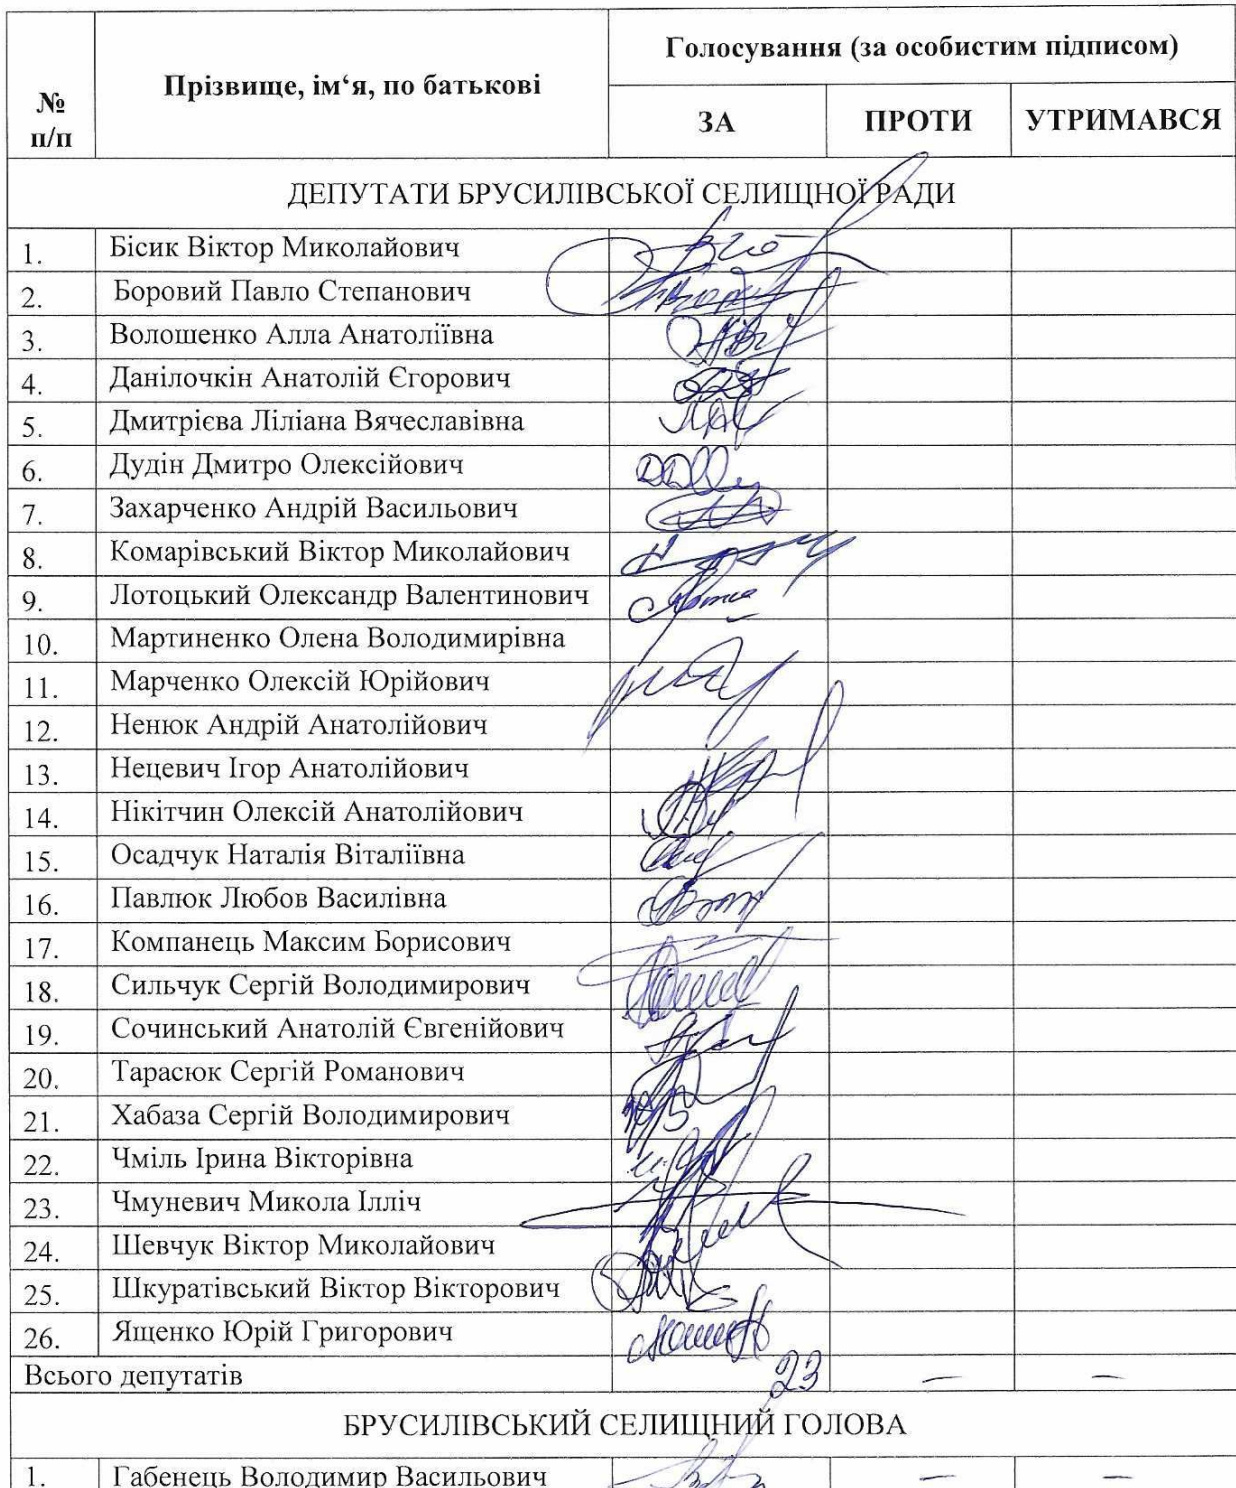 № п/п Прізвище, ім‘я, по батькові Голосування (за особистим підписом)
ЗА ПРОТИ УТРИМАВСЯ
ДЕПУТАТИ БРУСИЛІВСЬКОЇ СЕЛИЩНОЇ РАДИ
1. Бісик Віктор Миколайович
2. Боровий Павло Степанович
3. Волошенко Алла Анатоліївна
4. Данілочкін Анатолій Єгорович
5. Дмитрієва Ліліана Вячеславівна
6. Дудін Дмитро Олексійович
7. Захарченко Андрій Васильович
8. Комарівський Віктор Миколайович
9. Лотоцький Олександр Валентинович
10. Мартиненко Олена Володимирівна
11. Марченко Олексій Юрійович
12. Ненюк Андрій Анатолійович
13. Нецевич Ігор Анатолійович
14. Нікітчин Олексій Анатолійович
15. Осадчук Наталія Віталіївна
16. Павлюк Любов Василівна
17. Компанець Максим Борисович
18. Сильчук Сергій Володимирович
19. Сочинський Анатолій Євгенійович
20. Тарасюк Сергій Романович
21. Хабаза Сергій Володимирович
22. Чміль Ірина Вікторівна
23. Чмуневич Микола Ілліч
24. Шевчук Віктор Миколайович
25. Шкуратівський Віктор Вікторович
26. Ященко Юрій Григорович
Всього депутатів 23 — —
БРУСИЛІВСЬКИЙ СЕЛИЩНИЙ ГОЛОВА
1. Габенець Володимир Васильович — —